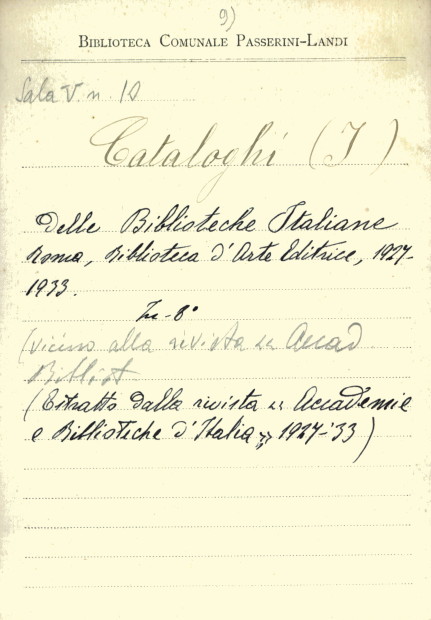 9)
BIBLIOTECA COMUNALE PASSERINI-LANDI
Sala V. n. 10
Cataloghi (I)
Delle Biblioteche Italiane
Roma, Biblioteca d'Arte Editrice, 1927-
1933.
In-8°
(vicino alla rivista << Accad.
Bibliot
(Estratto dalla rivista << Accademie
e Biblioteche d'Italia >> 1927-'33)